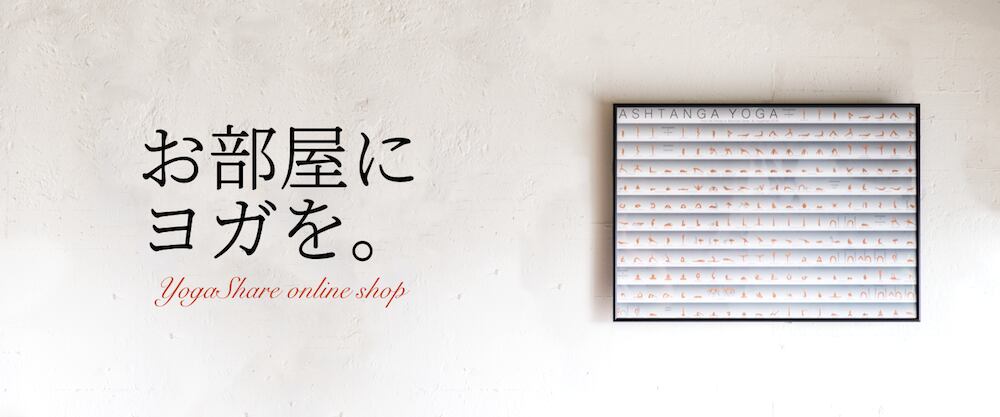 お部屋に
ヨガを。
YogaShare online shop
ASHTANGA YOGA